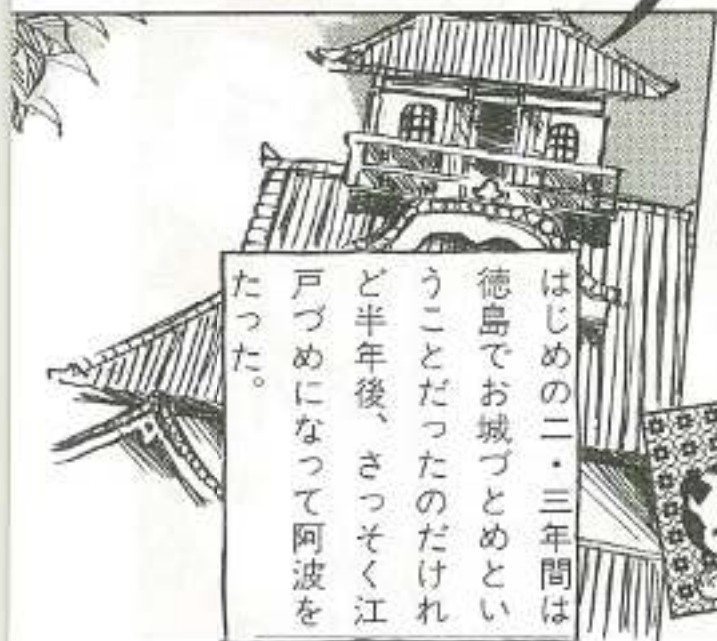 はじめの二・三年間は
徳島でお城づとめとい
うことだったのだけれ
ど半年後、さっそく江
戸づめになって阿波を
たった。